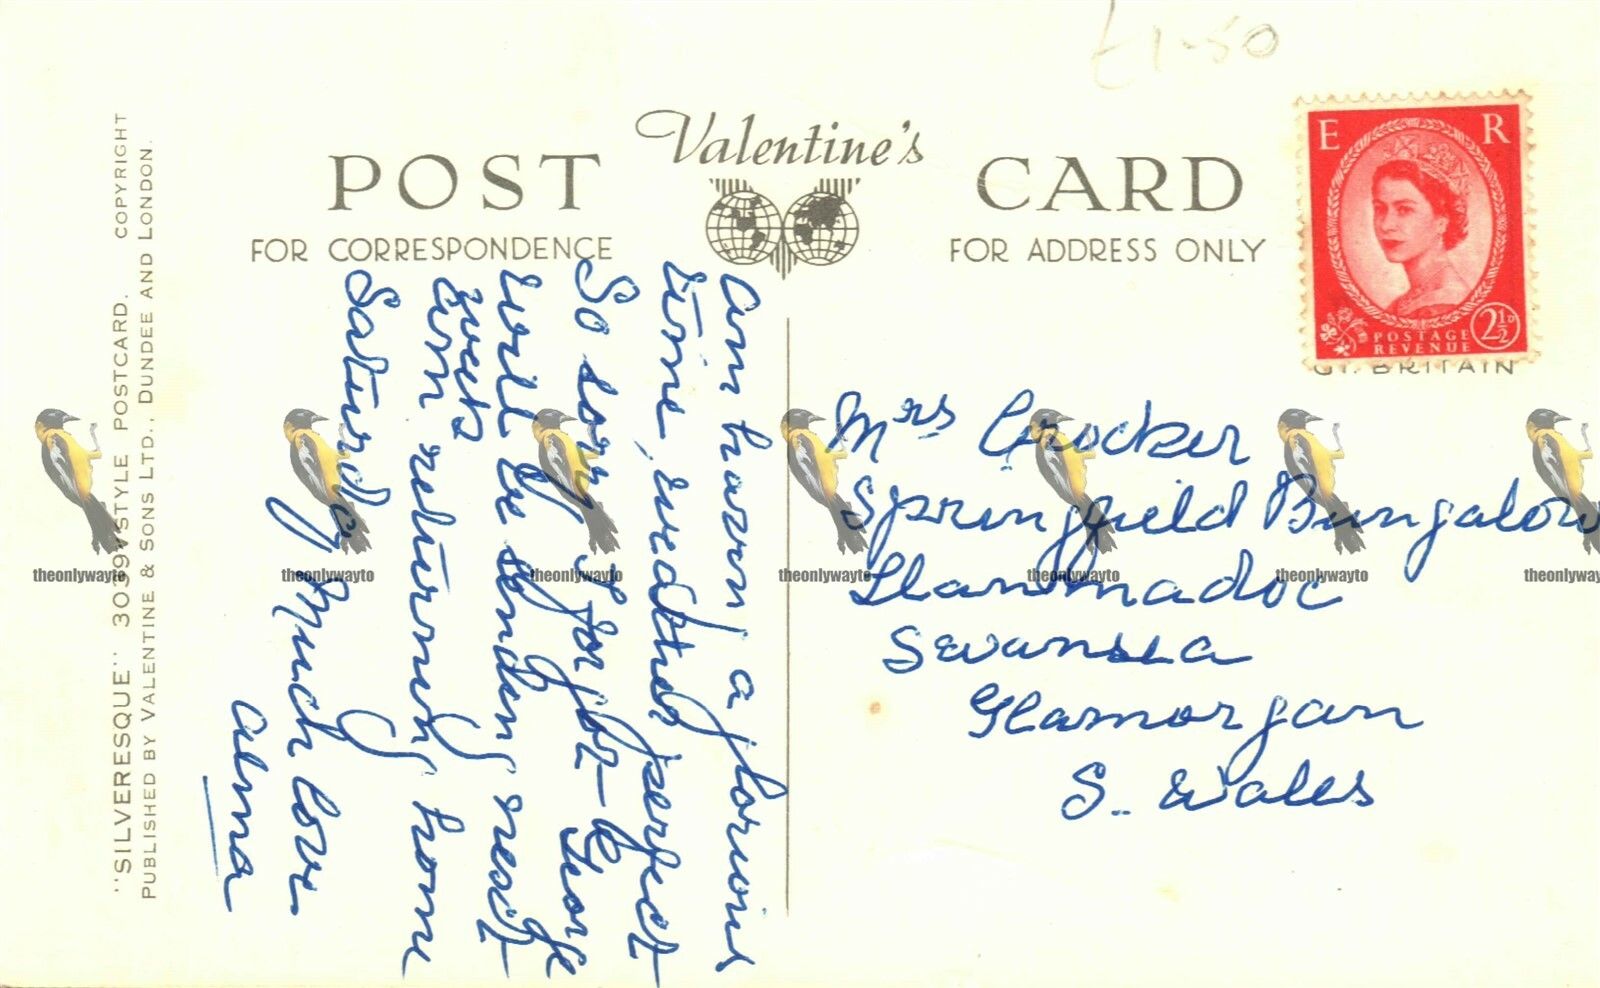 £1-50
Valentine's
POST CARD
FOR CORRESPONDENCE
FOR ADDRESS ONLY
E R
POSTAGE
REVENUE
2½D
GT. BRITAIN
"SILVERESQUE" 3039VSTYLE POSTCARD. COPYRIGHT
PUBLISHED BY VALENTINE & SONS LTD., DUNDEE AND LONDON.
Am having a glorious
time, weather perfect
So sorry I forgot George
will be sending next
week
Am returning home
Saturday
Much love
Alma
Mrs Crocker
Springfield Bungalow
Llanmadoc
Swansea
Glamorgan
S. Wales
theonlywayto theonlywayto theonlywayto theonlywayto theonlywayto theonlywayto theonlyway